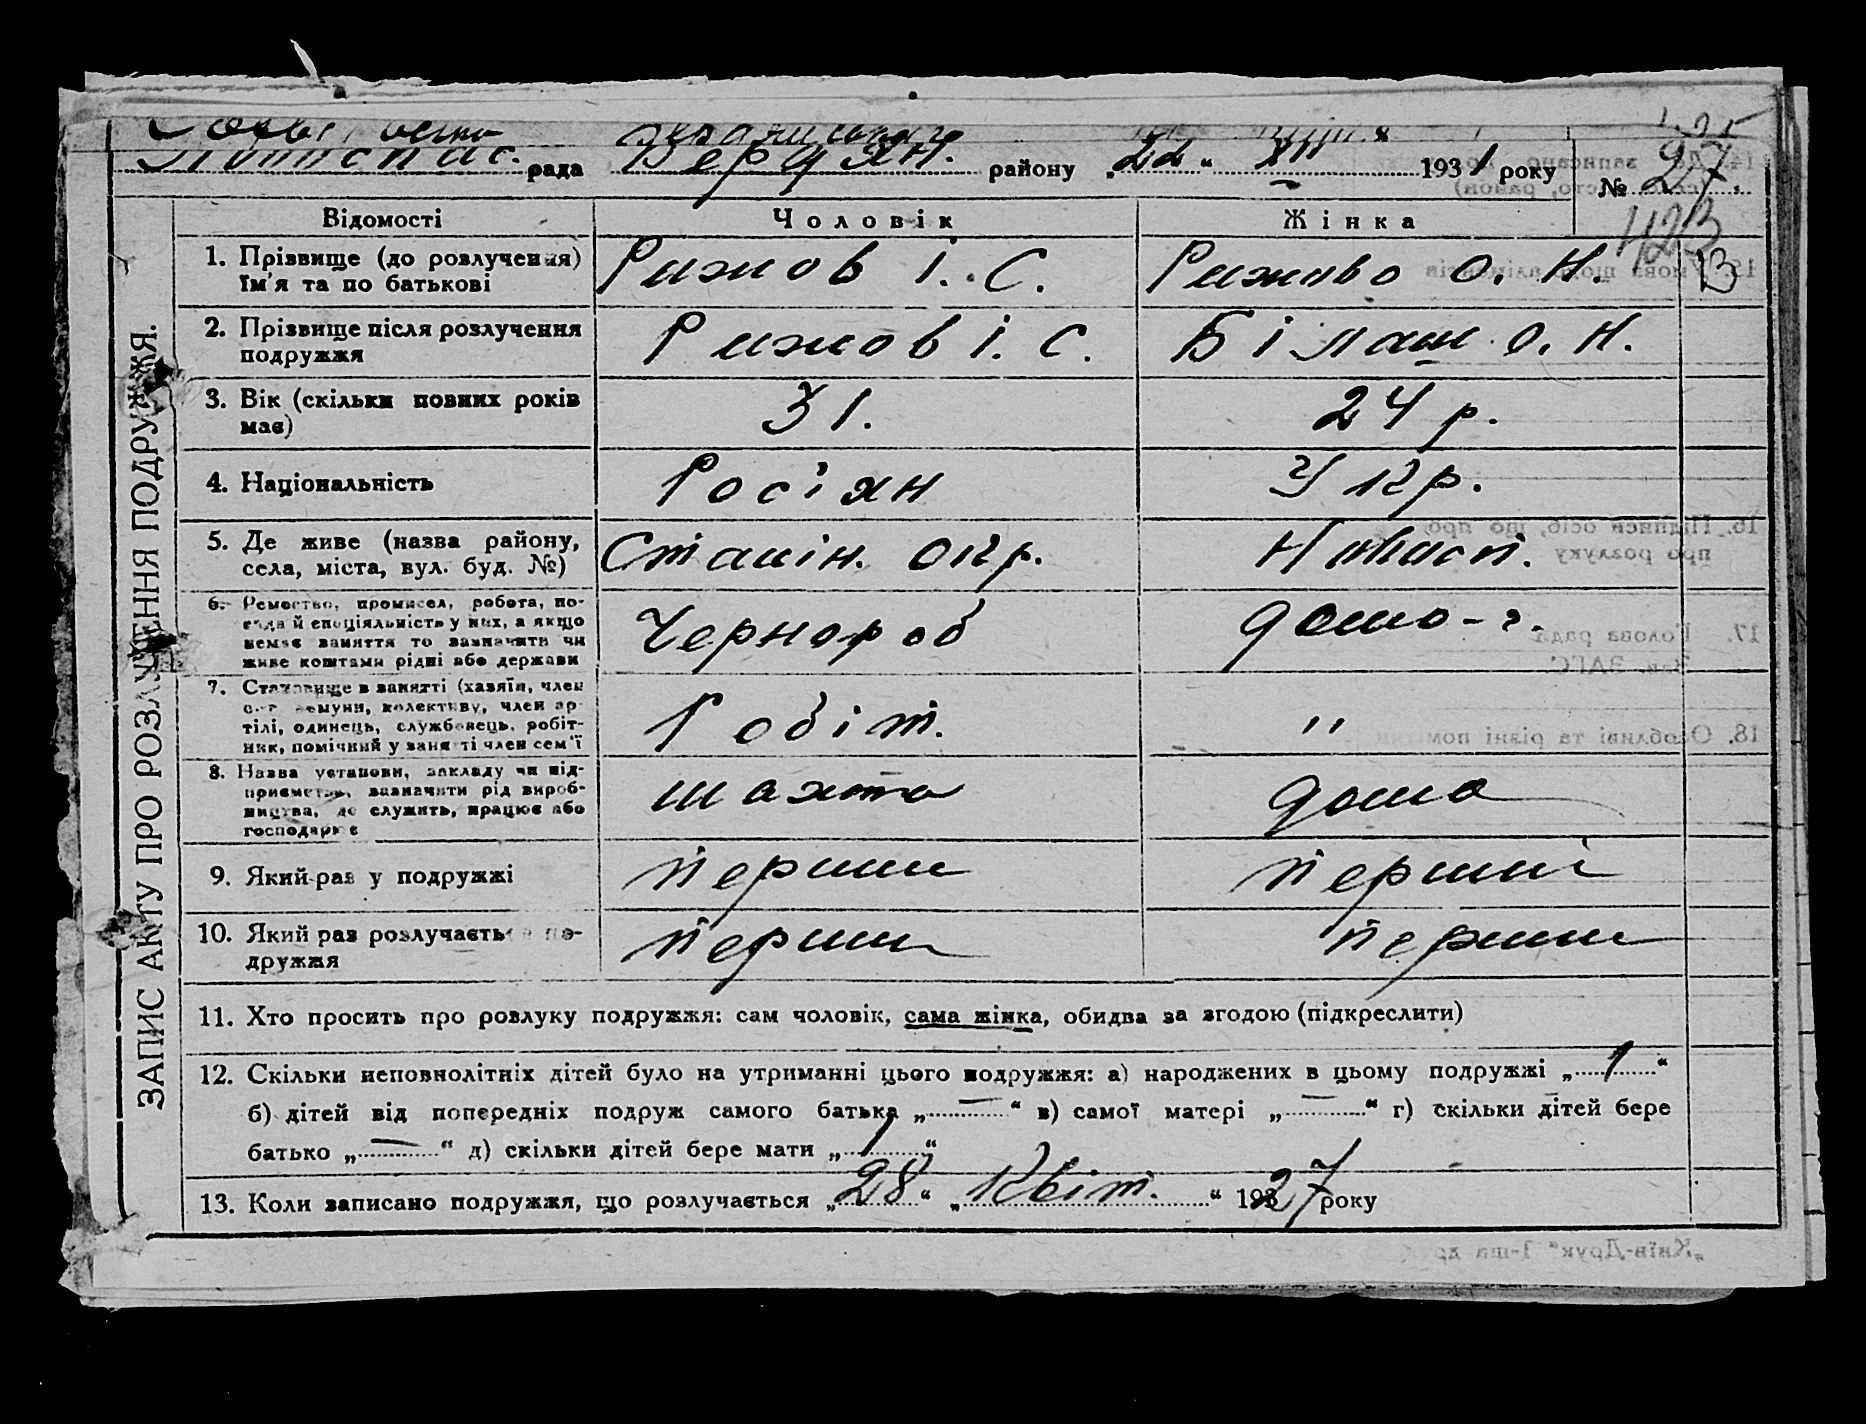 рада Бердян. району „22“ XII 1931 року № 27.
423
Відомості Чоловік Жінка
1. Прізвище (до розлучення) Рижов І. С. Рижово О. Н. 13
Ім'я та по батькові
2. Прізвище після розлучення Рижов І. С. Білаш О. Н.
подружжя
3. Вік (скільки повних років 31. 24 р.
має)
4. Національність Росіян Укр.
5. Де живе (назва району, Сталін. окр.
села, міста, вул. буд. №)
6. Ремество, промисел, робота, по- Чернороб домо-г.
сада й спеціяльність у них, а якщо
немає заняття то зазначити чи
живе коштами рідні або держави
7. Становище в занятті (хазяїн, член Робіт. "
комуни, колективу, член ар-
тілі, одинець, службовець, робіт-
ник, помічний у занятті член сем'ї
8. Назва установи, закладу чи під- шахта дома
приємства, зазначити рід вироб-
ництва, де служить, працює або
господарює
9. Який раз у подружжі перший перший
10. Який раз розлучається по- перший перший
дружжя
11. Хто просить про розлуку подружжя: сам чоловік, сама жінка, обидва за згодою (підкреслити)
12. Скільки неповнолітніх дітей було на утриманні цього подружжя: а) народжених в цьому подружжі „1“
б) дітей від попередніх подруж самого батька „—“ в) самої матері „—“ г) скільки дітей бере
батько „—“ д) скільки дітей бере мати „1“
13. Коли записано подружжя, що розлучається „28“ „Квіт.“ 1927 року
ЗАПИС АКТУ ПРО РОЗЛУЧЕННЯ ПОДРУЖЖЯ.